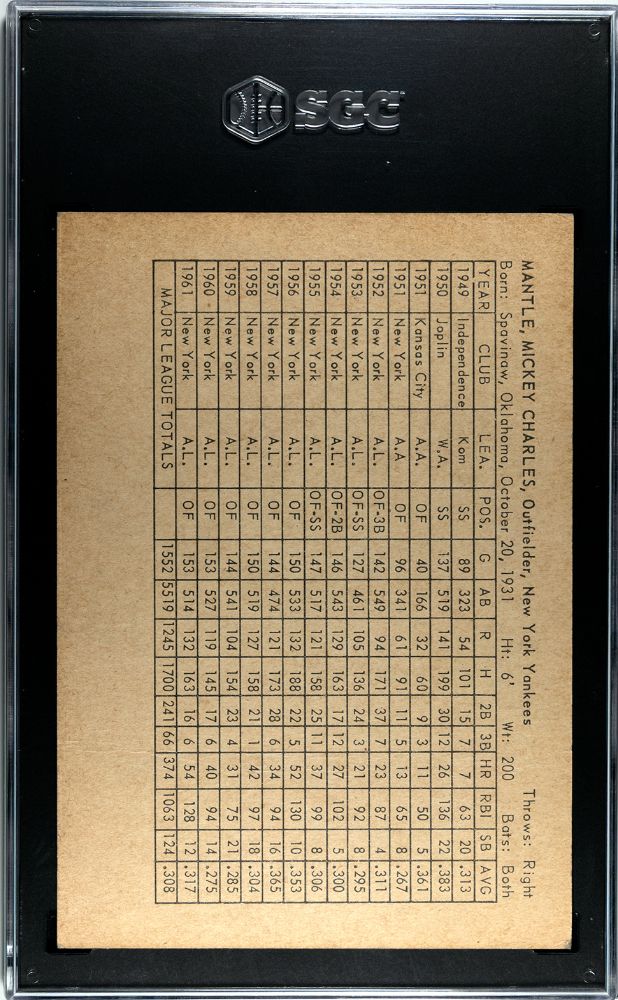 SGC
MANTLE, MICKEY CHARLES, Outfielder, New York Yankees Throws: Right
Born: Spavinaw, Oklahoma, October 20, 1931 Ht: 6' Wt: 200 Bats: Both
YEAR CLUB LEA. POS. G AB R H 2B 3B HR RBI SB AVG
1949 Independence Kom SS 89 323 54 101 15 7 7 63 20 .313
1950 Joplin W.A. SS 137 519 141 199 30 12 26 136 22 .383
1951 Kansas City A.A. OF 40 166 32 60 9 3 11 50 5 .361
1951 New York A.A OF 96 341 61 91 11 5 13 65 8 .267
1952 New York A.L. OF-3B 142 549 94 171 37 7 23 87 4 .311
1953 New York A.L. OF-SS 127 461 105 136 24 3 21 92 8 .295
1954 New York A.L. OF-2B 146 543 129 163 17 12 27 102 5 .300
1955 New York A.L. OF-SS 147 517 121 158 25 11 37 99 8 .306
1956 New York A.L. OF 150 533 132 188 22 5 52 130 10 .353
1957 New York A.L. OF 144 474 121 173 28 6 34 94 16 .365
1958 New York A.L. OF 150 519 127 158 21 1 42 97 18 .304
1959 New York A.L. OF 144 541 104 154 23 4 31 75 21 .285
1960 New York A.L. OF 153 527 119 145 17 6 40 94 14 .275
1961 New York A.L. OF 153 514 132 163 16 6 54 128 12 .317
MAJOR LEAGUE TOTALS 1552 5519 1245 1700 241 66 374 1063 124 .308